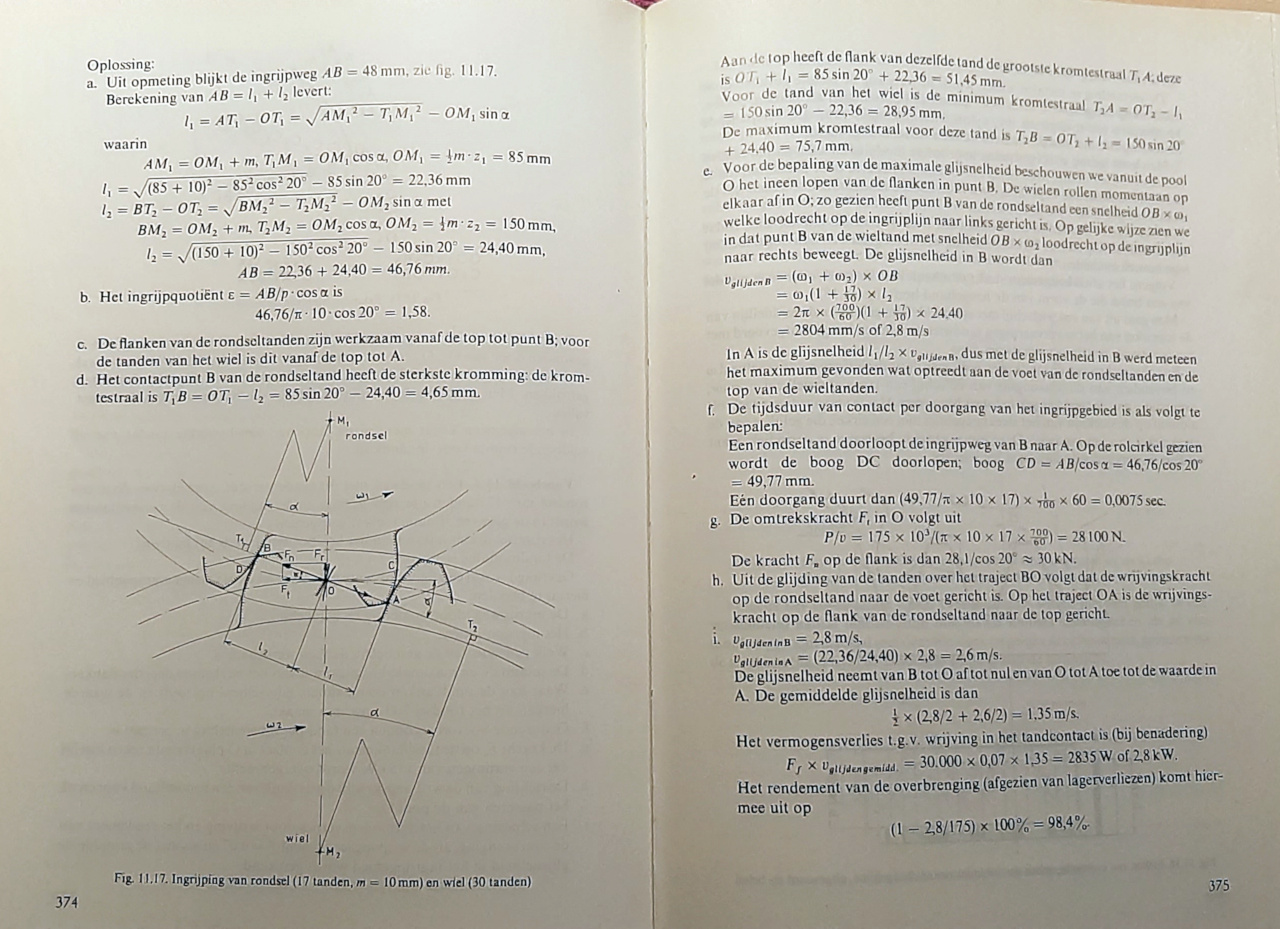 Oplossing:
a. Uit opmeting blijkt de ingrijpweg AB = 48 mm, zie fig. 11.17.
Berekening van AB = l₁ + l₂ levert:
l₁ = AT₁ − OT₁ = √(AM₁² − T₁M₁²) − OM₁ sin α
waarin
AM₁ = OM₁ + m, T₁M₁ = OM₁ cos α, OM₁ = ½m · z₁ = 85 mm
l₁ = √((85 + 10)² − 85² cos² 20°) − 85 sin 20° = 22,36 mm
l₂ = BT₂ − OT₂ = √(BM₂² − T₂M₂²) − OM₂ sin α met
BM₂ = OM₂ + m, T₂M₂ = OM₂ cos α, OM₂ = ½m · z₂ = 150 mm,
l₂ = √((150 + 10)² − 150² cos² 20°) − 150 sin 20° = 24,40 mm,
AB = 22,36 + 24,40 = 46,76 mm.
b. Het ingrijpquotiënt ε = AB/p · cos α is
46,76/π · 10 · cos 20° = 1,58.
c. De flanken van de rondseltanden zijn werkzaam vanaf de top tot punt B; voor
de tanden van het wiel is dit vanaf de top tot A.
d. Het contactpunt B van de rondseltand heeft de sterkste kromming: de krom-
testraal is T₁B = OT₁ − l₂ = 85 sin 20° − 24,40 = 4,65 mm.
M₁
rondsel
ω1
α
T₁
B
Fn
Fr
D
C
Ft
O
A
T₂
l₂
l₁
α
ω2
wiel
M₂
Fig. 11.17. Ingrijping van rondsel (17 tanden, m = 10 mm) en wiel (30 tanden)
374
Aan de top heeft de flank van dezelfde tand de grootste kromtestraal T₁A; deze
is OT₁ + l₁ = 85 sin 20° + 22,36 = 51,45 mm.
Voor de tand van het wiel is de minimum kromtestraal T₂A = OT₂ − l₁
= 150 sin 20° − 22,36 = 28,95 mm.
De maximum kromtestraal voor deze tand is T₂B = OT₂ + l₂ = 150 sin 20°
+ 24,40 = 75,7 mm.
e. Voor de bepaling van de maximale glijsnelheid beschouwen we vanuit de pool
O het ineen lopen van de flanken in punt B. De wielen rollen momentaan op
elkaar af in O; zo gezien heeft punt B van de rondseltand een snelheid OB × ω₁
welke loodrecht op de ingrijplijn naar links gericht is. Op gelijke wijze zien we
in dat punt B van de wieltand met snelheid OB × ω₂ loodrecht op de ingrijplijn
naar rechts beweegt. De glijsnelheid in B wordt dan
v glijden B = (ω₁ + ω₂) × OB
= ω₁(1 + 17/30) × l₂
= 2π × (700/60)(1 + 17/30) × 24,40
= 2804 mm/s of 2,8 m/s
In A is de glijsnelheid l₁/l₂ × v glijden B, dus met de glijsnelheid in B werd meteen
het maximum gevonden wat optreedt aan de voet van de rondseltanden en de
top van de wieltanden.
f. De tijdsduur van contact per doorgang van het ingrijpgebied is als volgt te
bepalen:
Een rondseltand doorloopt de ingrijpweg van B naar A. Op de rolcirkel gezien
wordt de boog DC doorlopen; boog CD = AB/cos α = 46,76/cos 20°
= 49,77 mm.
Eén doorgang duurt dan (49,77/π × 10 × 17) × 1/700 × 60 = 0,0075 sec.
g. De omtrekskracht Fₜ in O volgt uit
P/v = 175 × 10³/(π × 10 × 17 × 700/60) = 28 100 N.
De kracht Fₙ op de flank is dan 28,1/cos 20° ≈ 30 kN.
h. Uit de glijding van de tanden over het traject BO volgt dat de wrijvingskracht
op de rondseltand naar de voet gericht is. Op het traject OA is de wrijvings-
kracht op de flank van de rondseltand naar de top gericht.
i. v glijden in B = 2,8 m/s,
v glijden in A = (22,36/24,40) × 2,8 = 2,6 m/s.
De glijsnelheid neemt van B tot O af tot nul en van O tot A toe tot de waarde in
A. De gemiddelde glijsnelheid is dan
½ × (2,8/2 + 2,6/2) = 1,35 m/s.
Het vermogensverlies t.g.v. wrijving in het tandcontact is (bij benadering)
F_f × v glijden gemidd. = 30.000 × 0,07 × 1,35 = 2835 W of 2,8 kW.
Het rendement van de overbrenging (afgezien van lagerverliezen) komt hier-
mee uit op
(1 − 2,8/175) × 100% = 98,4%.
375